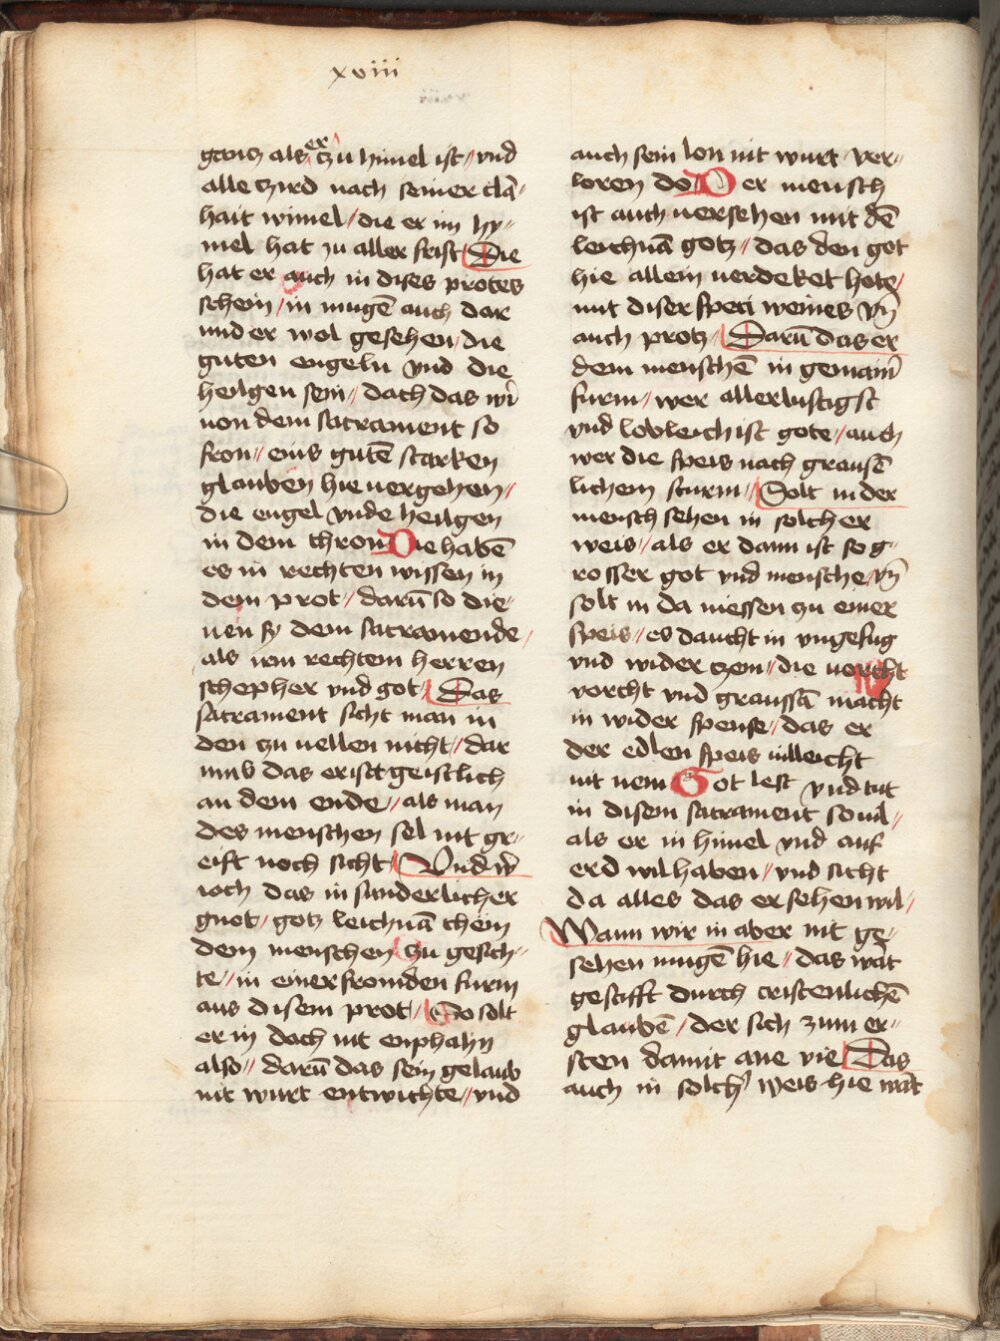 xviii
gantz als er zu himel ist // vnd
alle zird nach seiner clā-
hait wimel / die er im hy-
mel hat zu aller frist // Die
hat er auch in dises protes
schein / in mugē auch dar
Inn er wol gesehen / die
guten engeln vnd die
heiligen sein // dach das wir
uon dem sacrament so
fron // eins gutē starken
glauben hie uergehen /
die engel vnde heilgen
in dem thron Die habē
es in rechten wissen in
dem prot / darū so die-
nen sy dem sacramende /
als irm rechtem herren
schepher vnd got // Das
sacrament sicht man in
den zu uellen nicht / dar
umb das er ist geistlich
an dem ende // als man
des menschen sel nit gr-
eift noch sicht // Vnd w̄
ioch das in sunderlicher
gnot / gotz leichnā chem
dem menschen zu gesich-
te / in einer fromden furm
aus disem prot // So solt
er in doch nit enphahn
also // darū das sein gelaub
nit wurt entwichte // vnd
auch sein lon nit wurt ver-
loren do Der mensch
ist auch uersehen mit dē
leichnā gotz // das den got
hie allein uerdeket hote /
mit diser speci weines vn̄
auch protz // Darū das er
dem menschē in gemaim̄
furm // wer allerlustigst
vnd lobleich ist gote / auch
wer die speis nach grausē
lichem sturm // Solt in der
mensch sehen in solcher
weis / als er dann ist so g-
rosser got vnd mensche / vn̄
solt in da niessen zu einer
speis // es daucht in vngefug
vnd wider zem // die uorcht
vorcht vnd graussā macht
in wider spense / das er
der edlen speis uilleicht
nit nem Got lest vnd tut
in disem sacrament so uil /
als er in himel vnd auf
erd wil haben // vnd sicht
da alles das er sehen wil /
Wann wir in aber nit ge-
sehen mugē hie // das wāt
gestifft durch cristenlichē
glaubē / der sich zum er-
sten damit ane vie // Das
auch in solch' weis hie wāt